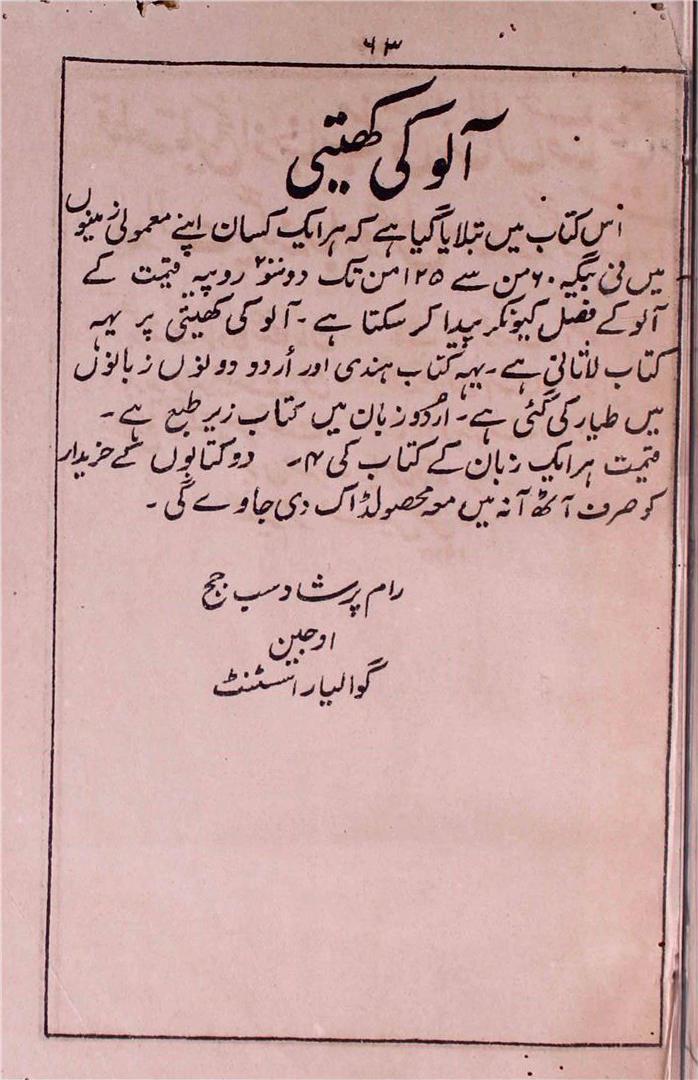 ۶۳
آلو کی کھیتی
اس کتاب میں بتلایا گیا ہے کہ ہر ایک کسان اپنے معمولی زمینوں
میں فی بیگہ ۶۰ من سے ۱۲۵ من تک دو سو روپیہ قیمت کے
آلو کے فصل کیونکر پیدا کر سکتا ہے ۔ آلو کی کھیتی پر یہہ
کتاب لاثانی ہے ۔ یہہ کتاب ہندی اور اُردو دونوں زبانوں
میں طیار کی گئی ہے ۔ اردو زبان میں کتاب زیر طبع ہے ۔
قیمت ہر ایک زبان کے کتاب کی ۴؍ ۔ دو کتابوں کے خریدار
کو صرف آٹھ آنہ میں معہ محصولڈاک دی جاوے گی ۔
رام پرشاد سب جج
اوجین
گوالیار اسٹیٹ